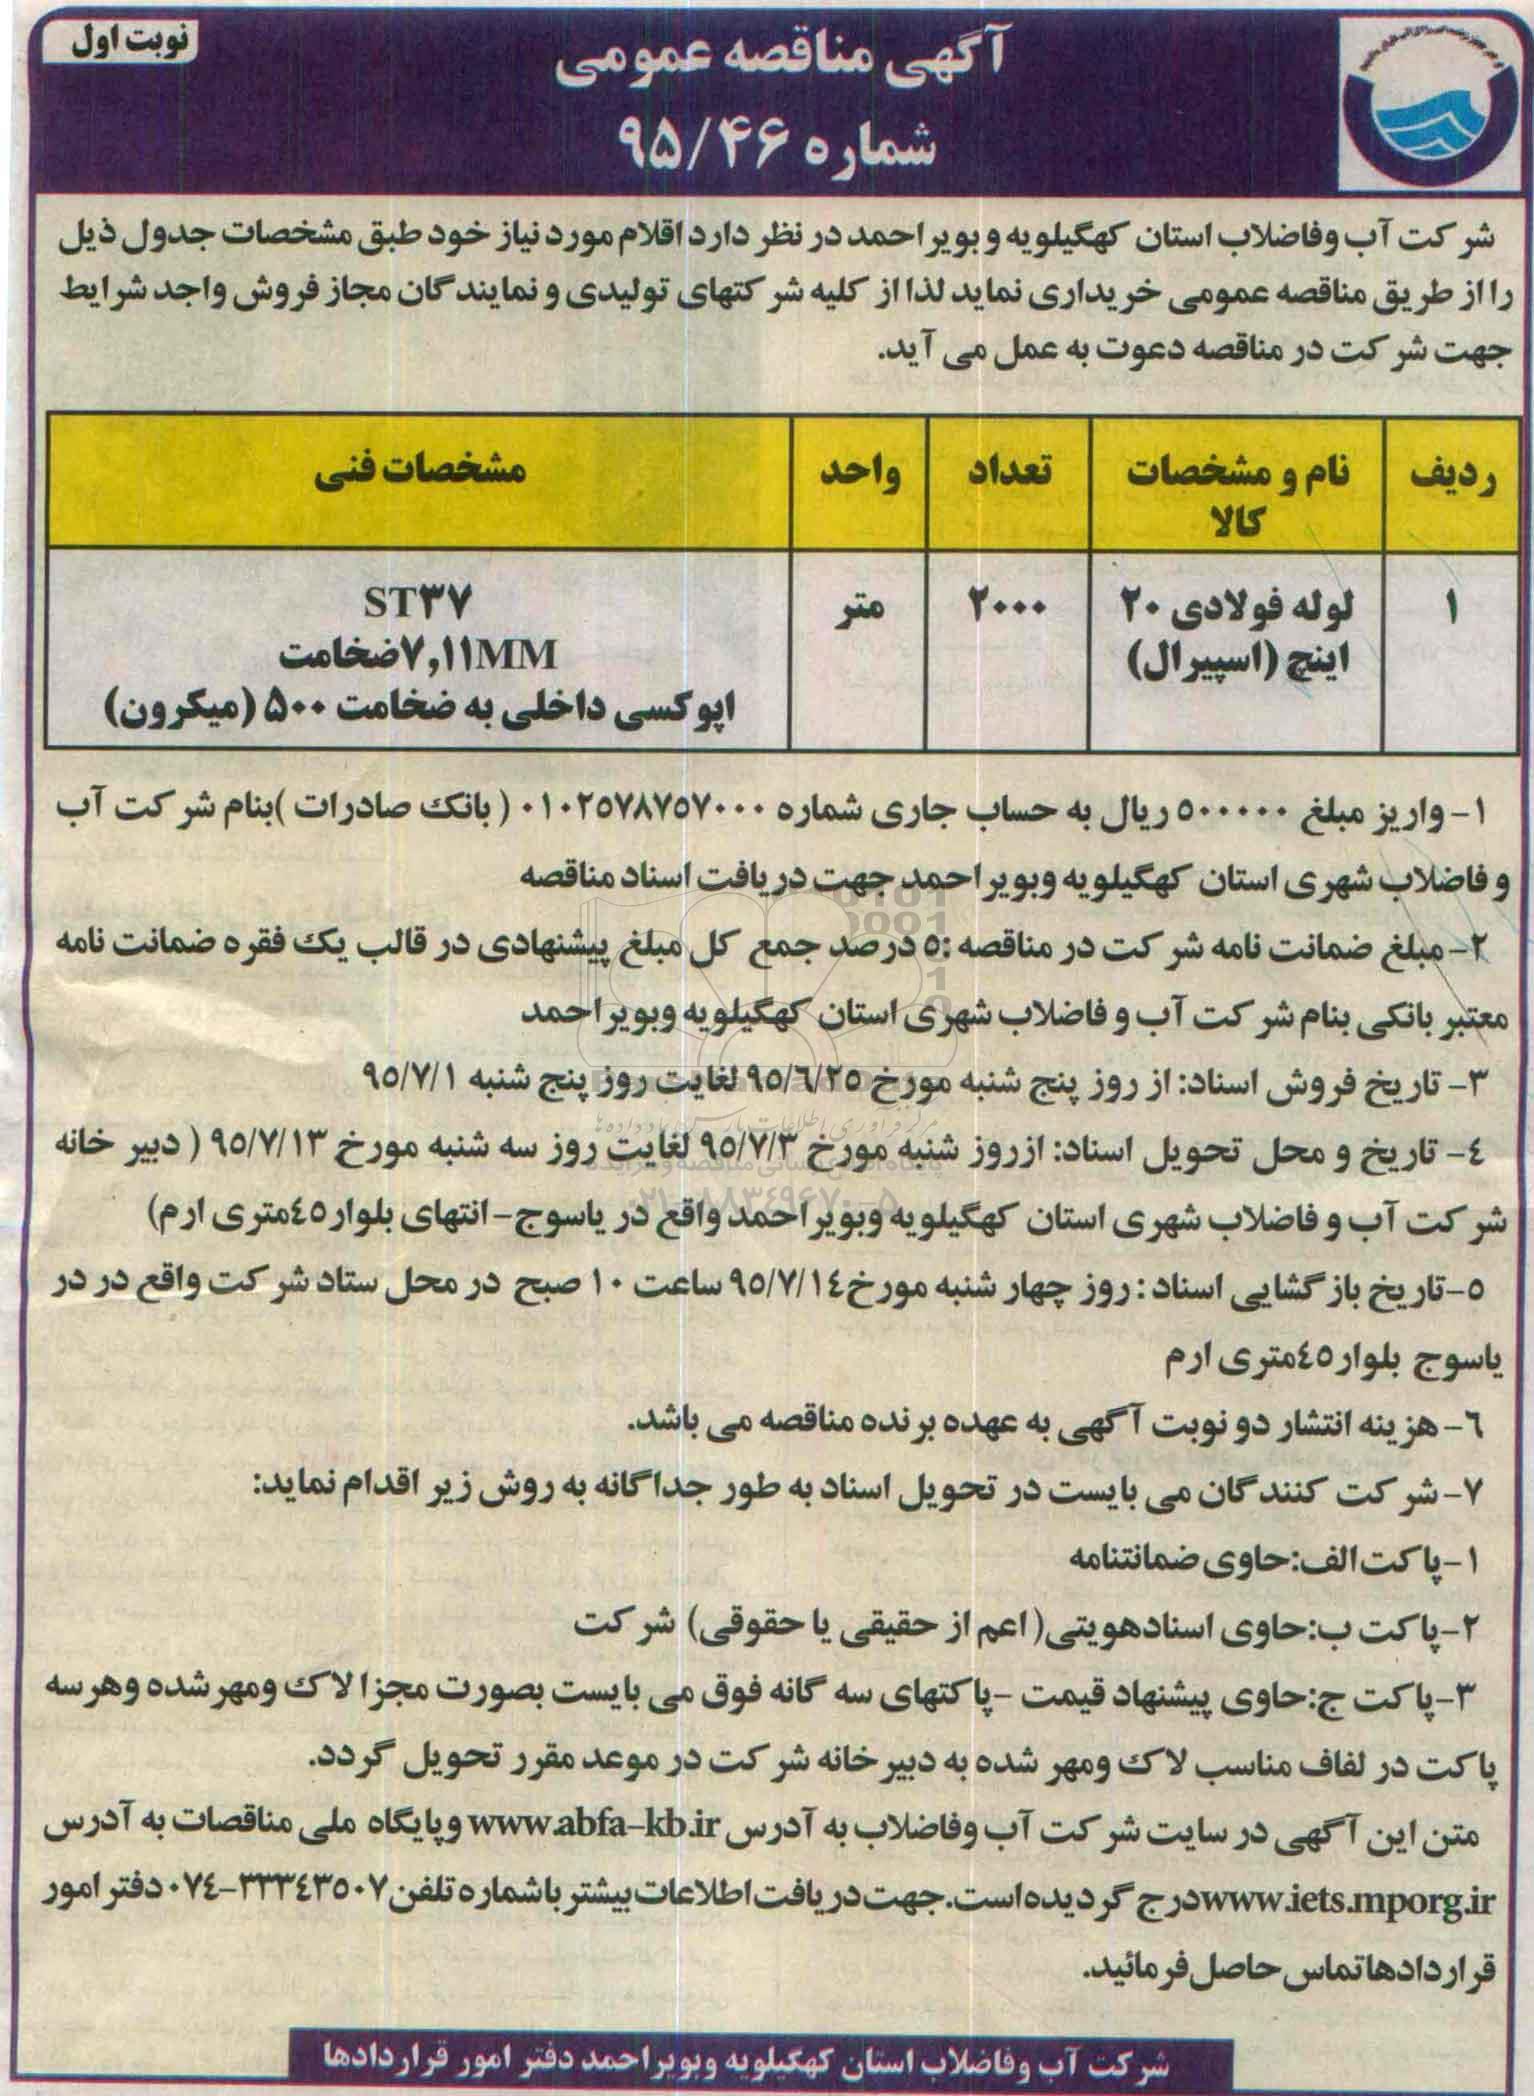 نوبت اول
آگهی مناقصه عمومی
شماره ۹۵/۴۶
شرکت آب وفاضلاب استان کهگیلویه و بویر احمد در نظر دارد اقلام مورد نیاز خود طبق مشخصات جدول ذیل
را از طریق مناقصه عمومی خریداری نماید لذا از کلیه شرکتهای تولیدی و نمایندگان مجاز فروش واجد شرایط
جهت شرکت در مناقصه دعوت به عمل می آید.
ردیف نام و مشخصات کالا تعداد واحد مشخصات فنی
۱ لوله فولادی ۲۰ اینچ (اسپیرال) ۲۰۰۰ متر ST۳۷
۷,۱۱MMضخامت
اپوکسی داخلی به ضخامت ۵۰۰ (میکرون)
۱- واریز مبلغ ۵۰۰۰۰۰ ریال به حساب جاری شماره ۰۱۰۲۵۷۸۷۵۷۰۰۰ ( بانک صادرات )بنام شرکت آب
و فاضلاب شهری استان کهگیلویه وبویر احمد جهت دریافت اسناد مناقصه
۲- مبلغ ضمانت نامه شرکت در مناقصه :۵ درصد جمع کل مبلغ پیشنهادی در قالب یک فقره ضمانت نامه
معتبر بانکی بنام شرکت آب و فاضلاب شهری استان کهگیلویه وبویر احمد
۳- تاریخ فروش اسناد: از روز پنج شنبه مورخ ۹۵/۶/۲۵ لغایت روز پنج شنبه ۹۵/۷/۱
٤- تاریخ و محل تحویل اسناد: ازروز شنبه مورخ ۹۵/۷/۳ لغایت روز سه شنبه مورخ ۹۵/۷/۱۳ ( دبیر خانه
شرکت آب و فاضلاب شهری استان کهگیلویه وبویر احمد واقع در یاسوج-انتهای بلوار٤۵متری ارم)
۵-تاریخ بازگشایی اسناد : روز چهار شنبه مورخ۹۵/۷/۱٤ ساعت ۱۰ صبح در محل ستاد شرکت واقع در در
یاسوج بلوار٤۵متری ارم
۶- هزینه انتشار دو نوبت آگهی به عهده برنده مناقصه می باشد.
۷- شرکت کنندگان می بایست در تحویل اسناد به طور جداگانه به روش زیر اقدام نماید:
۱-پاکت الف:حاوی ضمانتنامه
۲-پاکت ب:حاوی اسنادهویتی( اعم از حقیقی یا حقوقی) شرکت
۳-پاکت ج:حاوی پیشنهاد قیمت -پاکتهای سه گانه فوق می بایست بصورت مجزا لاک ومهر شده وهر سه
پاکت در لفاف مناسب لاک ومهر شده به دبیر خانه شرکت در موعد مقرر تحویل گردد.
متن این آگهی در سایت شرکت آب وفاضلاب به آدرس www.abfa-kb.ir وپایگاه ملی مناقصات به آدرس
www.iets.mporg.irدرج گردیده است.جهت دریافت اطلاعات بیشتر با شماره تلفن۰۷٤-۳۳۳٤۳۵۰۷ دفتر امور
قراردادها تماس حاصل فرمائید.
شرکت آب وفاضلاب استان کهگیلویه وبویر احمد دفتر امور قراردادها